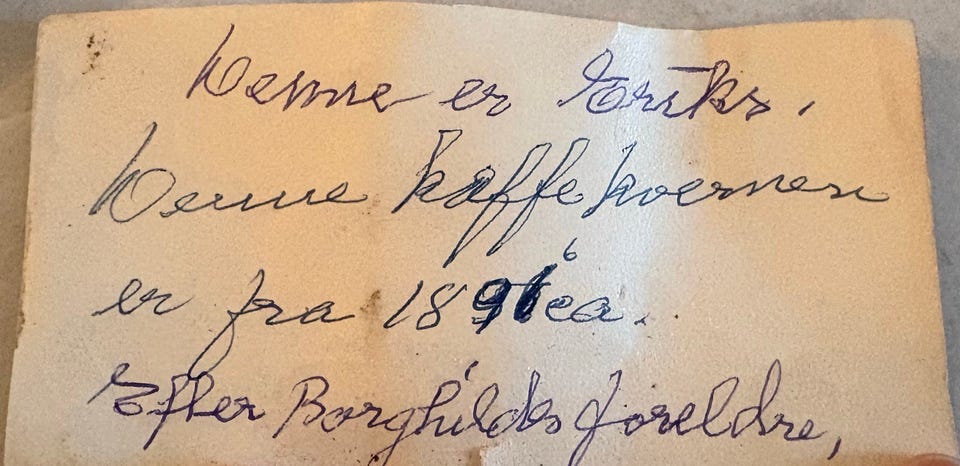 Denne er Eriks.
Denne kaffekvernen
er fra 1896 ca.
Efter Borghilds foreldre,